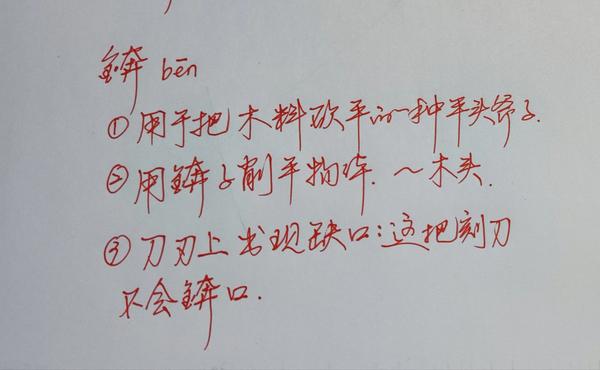 锛 bēn
①用于把木料砍平的一种平头斧子.
②用锛子削平物体. ～木头.
③刀刃上出现缺口:这把刻刀
不会锛口.